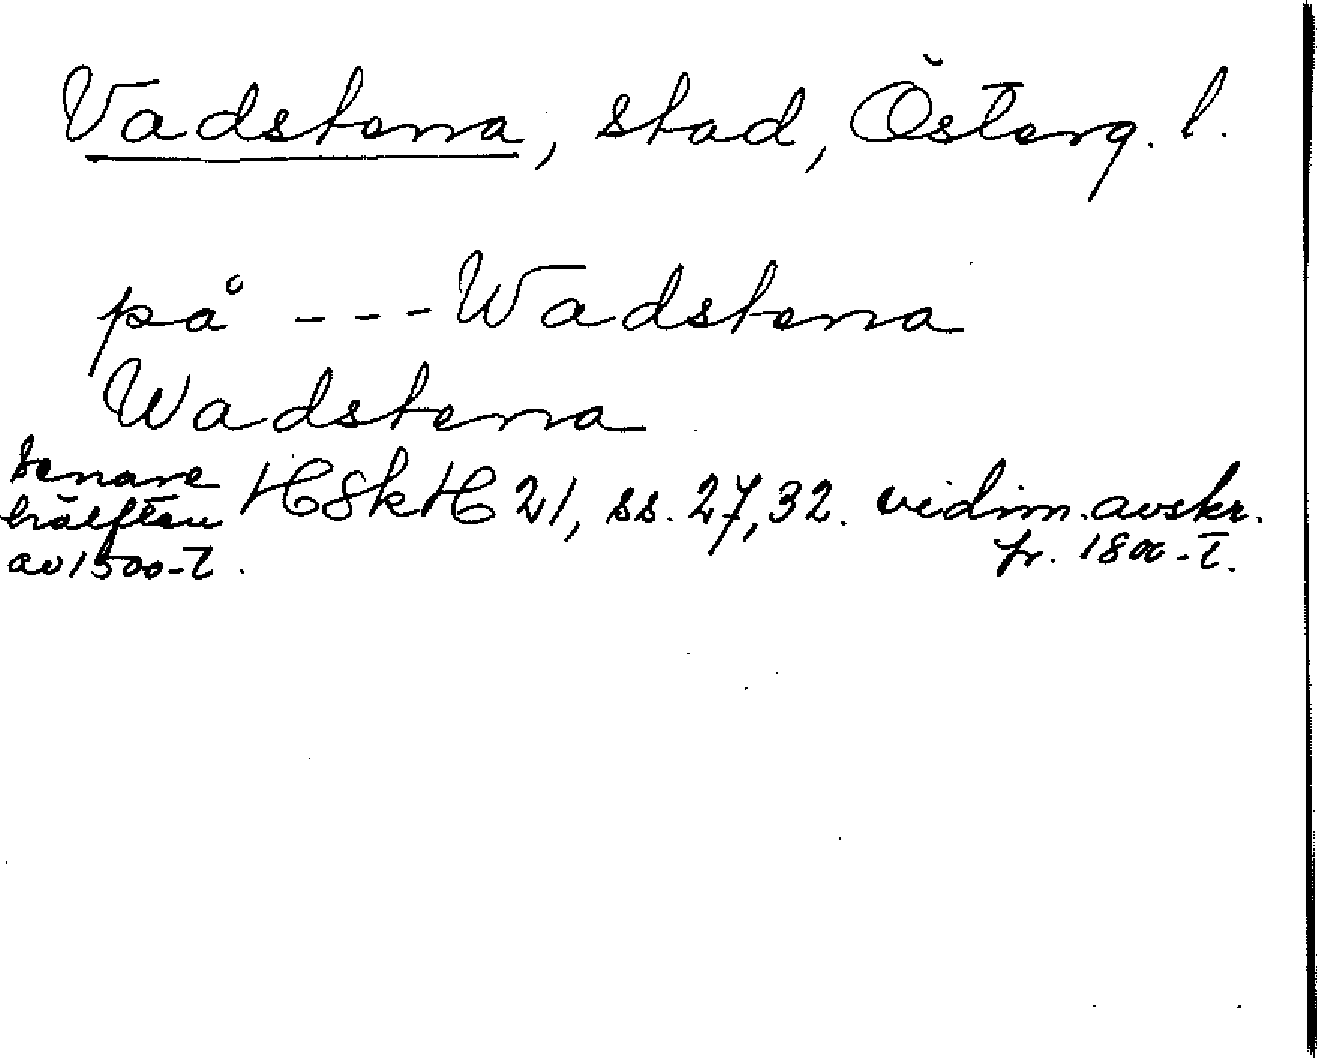 Vadstena, stad, Österg. l.
på --- Wadstena
Wadstena
senare hälften av 1500-t. HSkH 21, ss. 27, 32. vidim. avskr. fr. 1800-t.